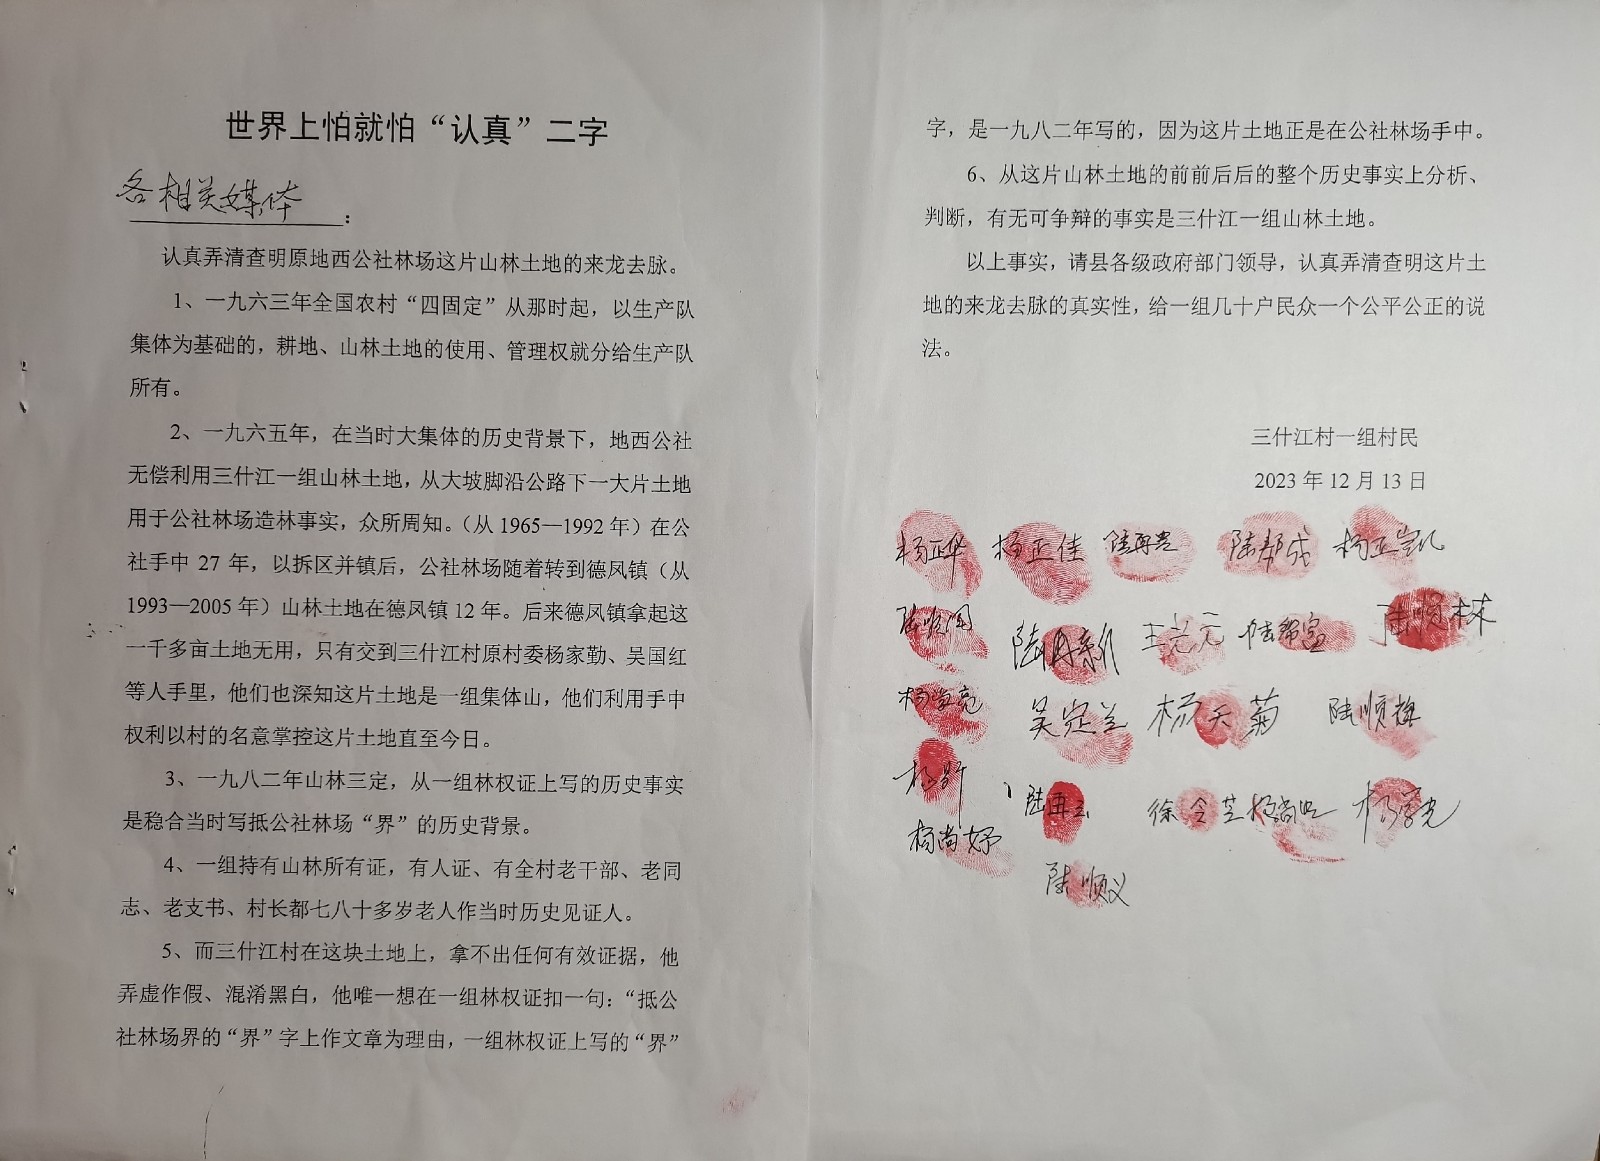 世界上怕就怕“认真”二字
各相关媒体：
认真弄清查明原地西公社林场这片山林土地的来龙去脉。
1、一九六三年全国农村“四固定”从那时起，以生产队
集体为基础的，耕地、山林土地的使用、管理权就分给生产队
所有。
2、一九六五年，在当时大集体的历史背景下，地西公社
无偿利用三什江一组山林土地，从大坡脚沿公路下一大片土地
用于公社林场造林事实，众所周知。（从1965—1992年）在公
社手中27年，以拆区并镇后，公社林场随着转到德凤镇（从
1993—2005年）山林土地在德凤镇12年。后来德凤镇拿起这
一千多亩土地无用，只有交到三什江村原村委杨家勤、吴国红
等人手里，他们也深知这片土地是一组集体山，他们利用手中
权利以村的名意掌控这片土地直至今日。
3、一九八二年山林三定，从一组林权证上写的历史事实
是稳合当时写抵公社林场“界”的历史背景。
4、一组持有山林所有证，有人证、有全村老干部、老同
志、老支书、村长都七八十多岁老人作当时历史见证人。
5、而三什江村在这块土地上，拿不出任何有效证据，他
弄虚作假、混淆黑白，他唯一想在一组林权证扣一句：“抵公
社林场界的“界”字上作文章为理由，一组林权证上写的“界”
字，是一九八二年写的，因为这片土地正是在公社林场手中。
6、从这片山林土地的前前后后的整个历史事实上分析、
判断，有无可争辩的事实是三什江一组山林土地。
以上事实，请县各级政府部门领导，认真弄清查明这片土
地的来龙去脉的真实性，给一组几十户民众一个公平公正的说
法。
三什江村一组村民
2023年12月13日
杨正华 杨正佳 陆再贵 陆帮成 杨正凯
陆再新 王兰元 陆帮宽 陆顺林
杨学亮 吴定兰 杨天菊 陆顺雄
徐令芝 杨学光
杨尚妤
陆顺义